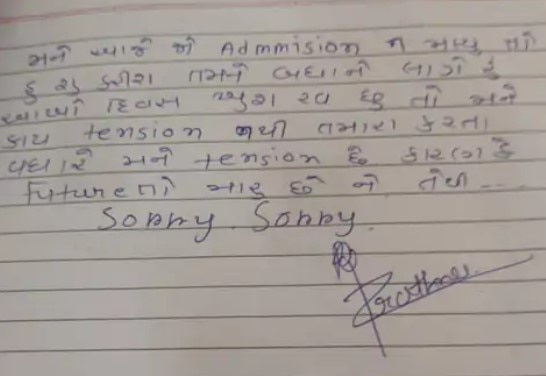 મને આજે જો Admmision ન મળ્યુ તો
હુ શુ કરીશ તમને બધાને લાગે છે
આખો દિવસ ખુશ રવ છુ તો મને
કાય tension નથી તમારા કરતા
વધારે મને tension છે કારણ કે
future તો મારૂ છે ને તેથી ....
Sorry Sorry